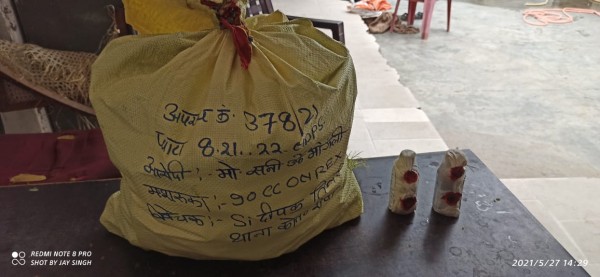 अपराध क्रं. 378/21
धारा 8.21..22 ndps
आरोपी :- मो. सनी उर्फ मोगली
मशरूका :- 90 CC ONREX
विवेचक :- Si दीपक
थाना
REDMI NOTE 8 PRO
SHOT BY JAY SINGH
2021/5/27 14:29